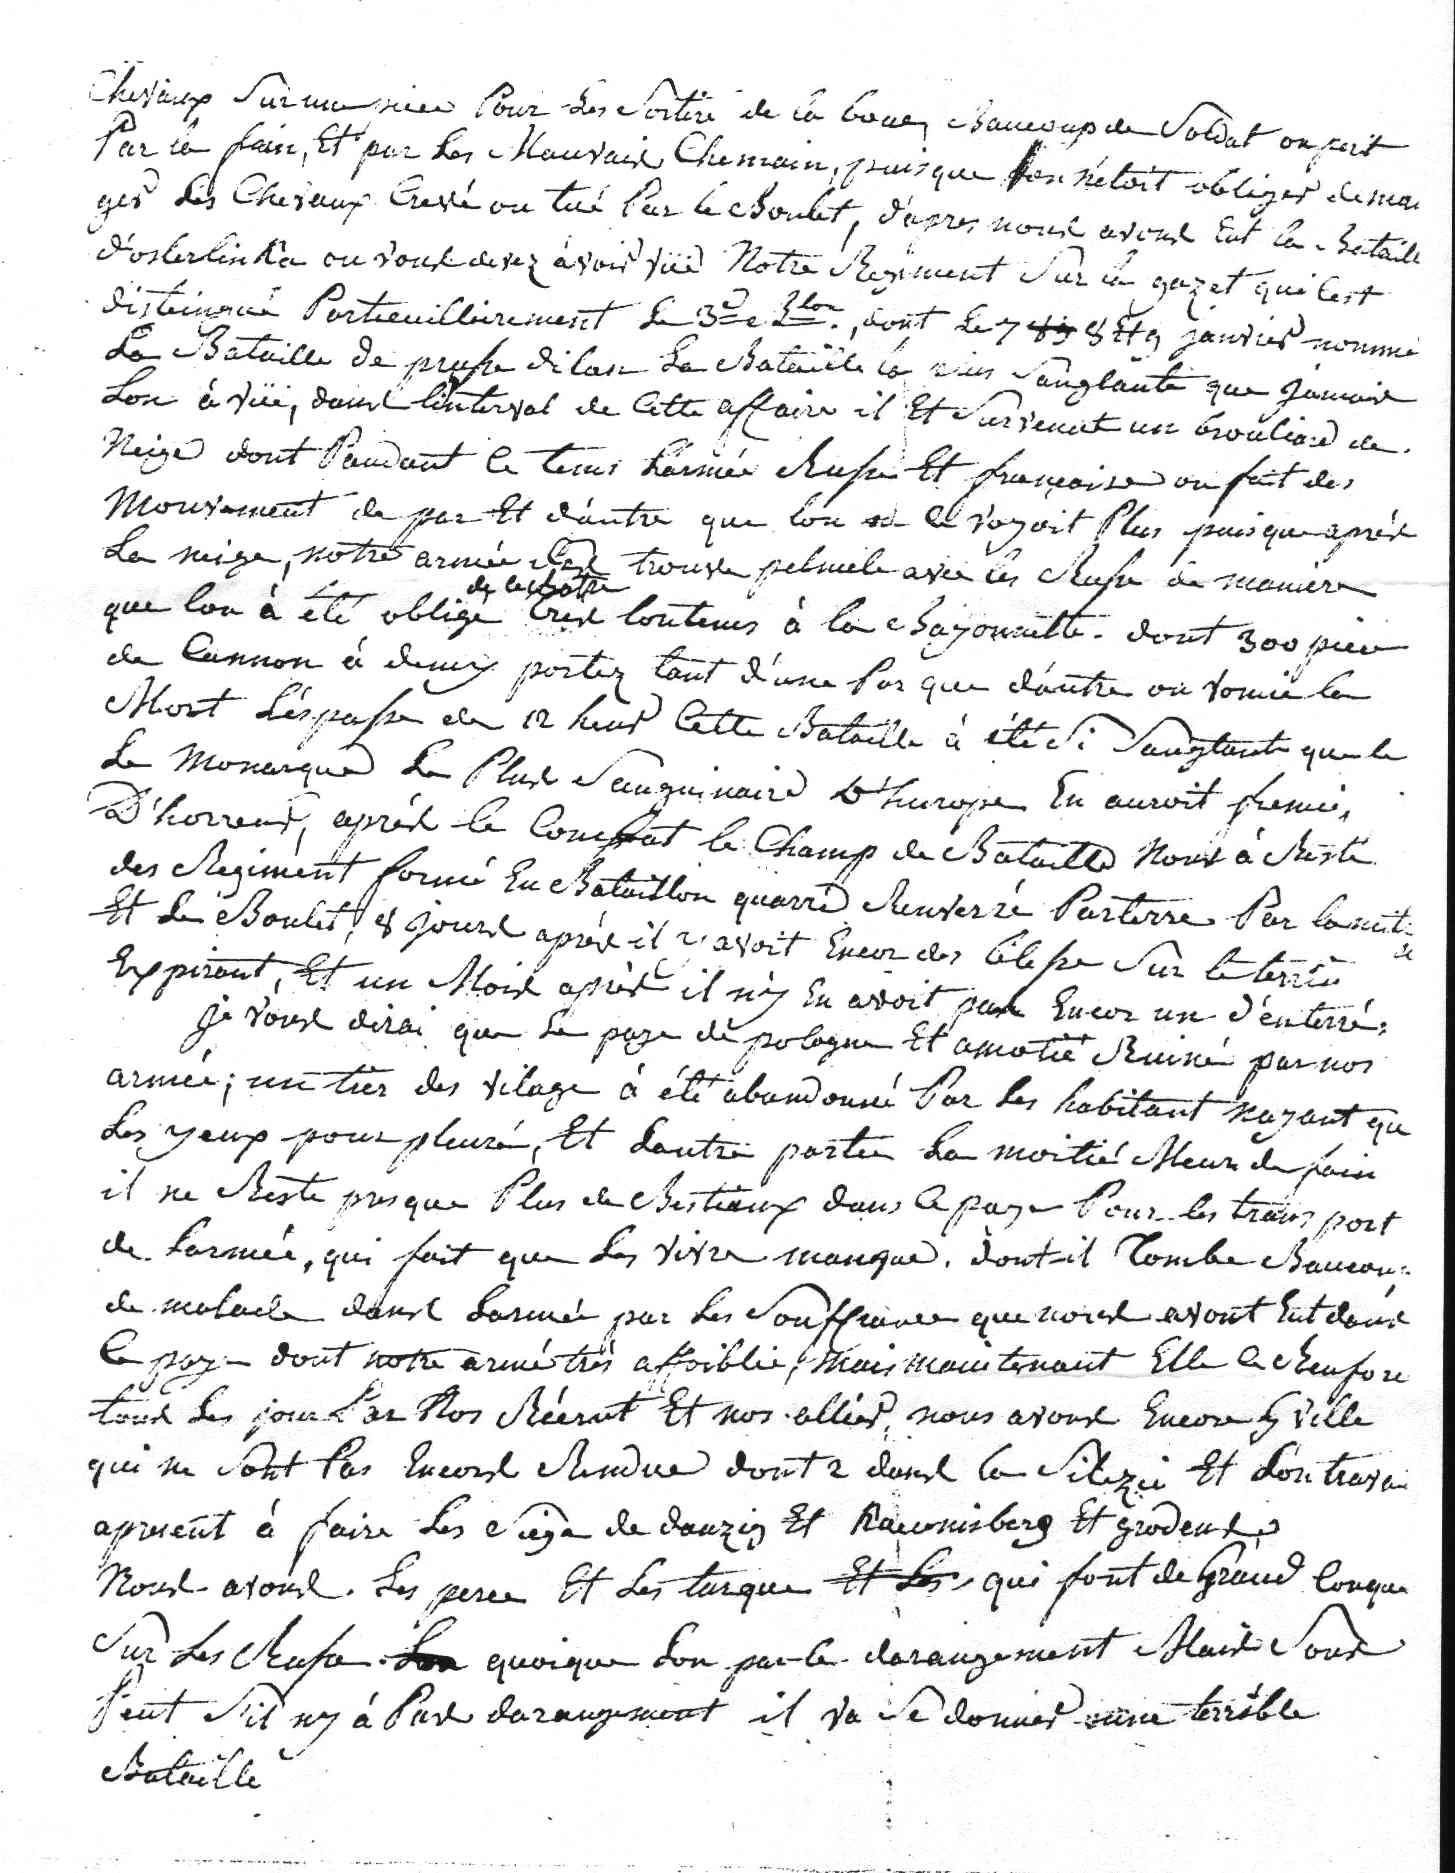 Chevaux Sur une piece Pour Les Sortire de la boue, Baucoup de Soldat on perit
Par la fain, Et par Les Mauvais Chemain, puisque lon n'etoit obliger de man
ger Les Chevaux Crevé ou tué Par le Boulet, d'apres nous avons Eut la Bataille
d'osterlinka ou vous devez àvoir vüe Notre Regiment Sur la gazet qui lest
disteingué Particuillairement Le 3e Blon, dont Le 7 8 Et 9 janvier nommé
La Bataille de prusse dilau La Bataille la plus Sanglante que jamais
Lon à vüe, dans linterval de Cette affaire il Et Survenut un brouliard de
Neige dont Pandant Ce tems Larmée Russe Et française on fait des
Mouvement de par Et d'autre que lon ne Ce voyoit Plus puisque aprés
La neige, notre armée Ces trouve pelmele avec les Russe de maniere
que lon à été obligé de ce batre Cres Contenus à la Bayonnette. dont 300 piece
de Cannon à demy portez tant d'une Par que d'autre on vomie la
Mort Léspasse de 12 heur Cette Bataille à été Si Sanglante que le
Le Monarque Le Plus Sanguinaire D'Europe En auroit fremie,
D'horreur, aprés le Combat le Champ de Bataille Nous à Resté
des Regiment formé En Bataillon quarré Renverré Parterre Par la mit
Et Le Boulet, 8 jours aprés il y avoit Encor des Blesse Sur le terrin
Expirant, Et un Mois aprés il n'y En avoit pas Encor un d'énterré,
je vous dirai que Le paye de pologne Et amotié Ruiné par nos
armée; un tier des vilage à été abandonné Par Les habitant nayant que
Les yeux pour pleuré, Et Lautre partie La moitié Meure de fain
il ne Reste presque Plus de Bestiaux dans Ce paye Pour les trans port
de Larmée, qui fait que Les vivre manque. dont il Tombe Baucou
de malade dans Larmée par Les Souffrance que nous avont Eut dans
Ce paye dont notre armé trés affoiblie, Mais maintenant Elle Ce Renforc
tous Les jour Par Nos Récrut Et nos alliér, nous avons Encore 5 ville
qui ne Sont Pas Encore Rendue dont 2 dans la Silezie Et Lon trava
apresent à faire Les Siege de danzig Et Kaeunisberg Et grodens
Nous avons. Les perce Et Les turque Et Les qui font de Grand Conque
Sur Les Russe. Lon quoique Lon parle darangement Mais Sous
Peut S'il n'y à Pas darangement il va Se donner une terrible
Bataille